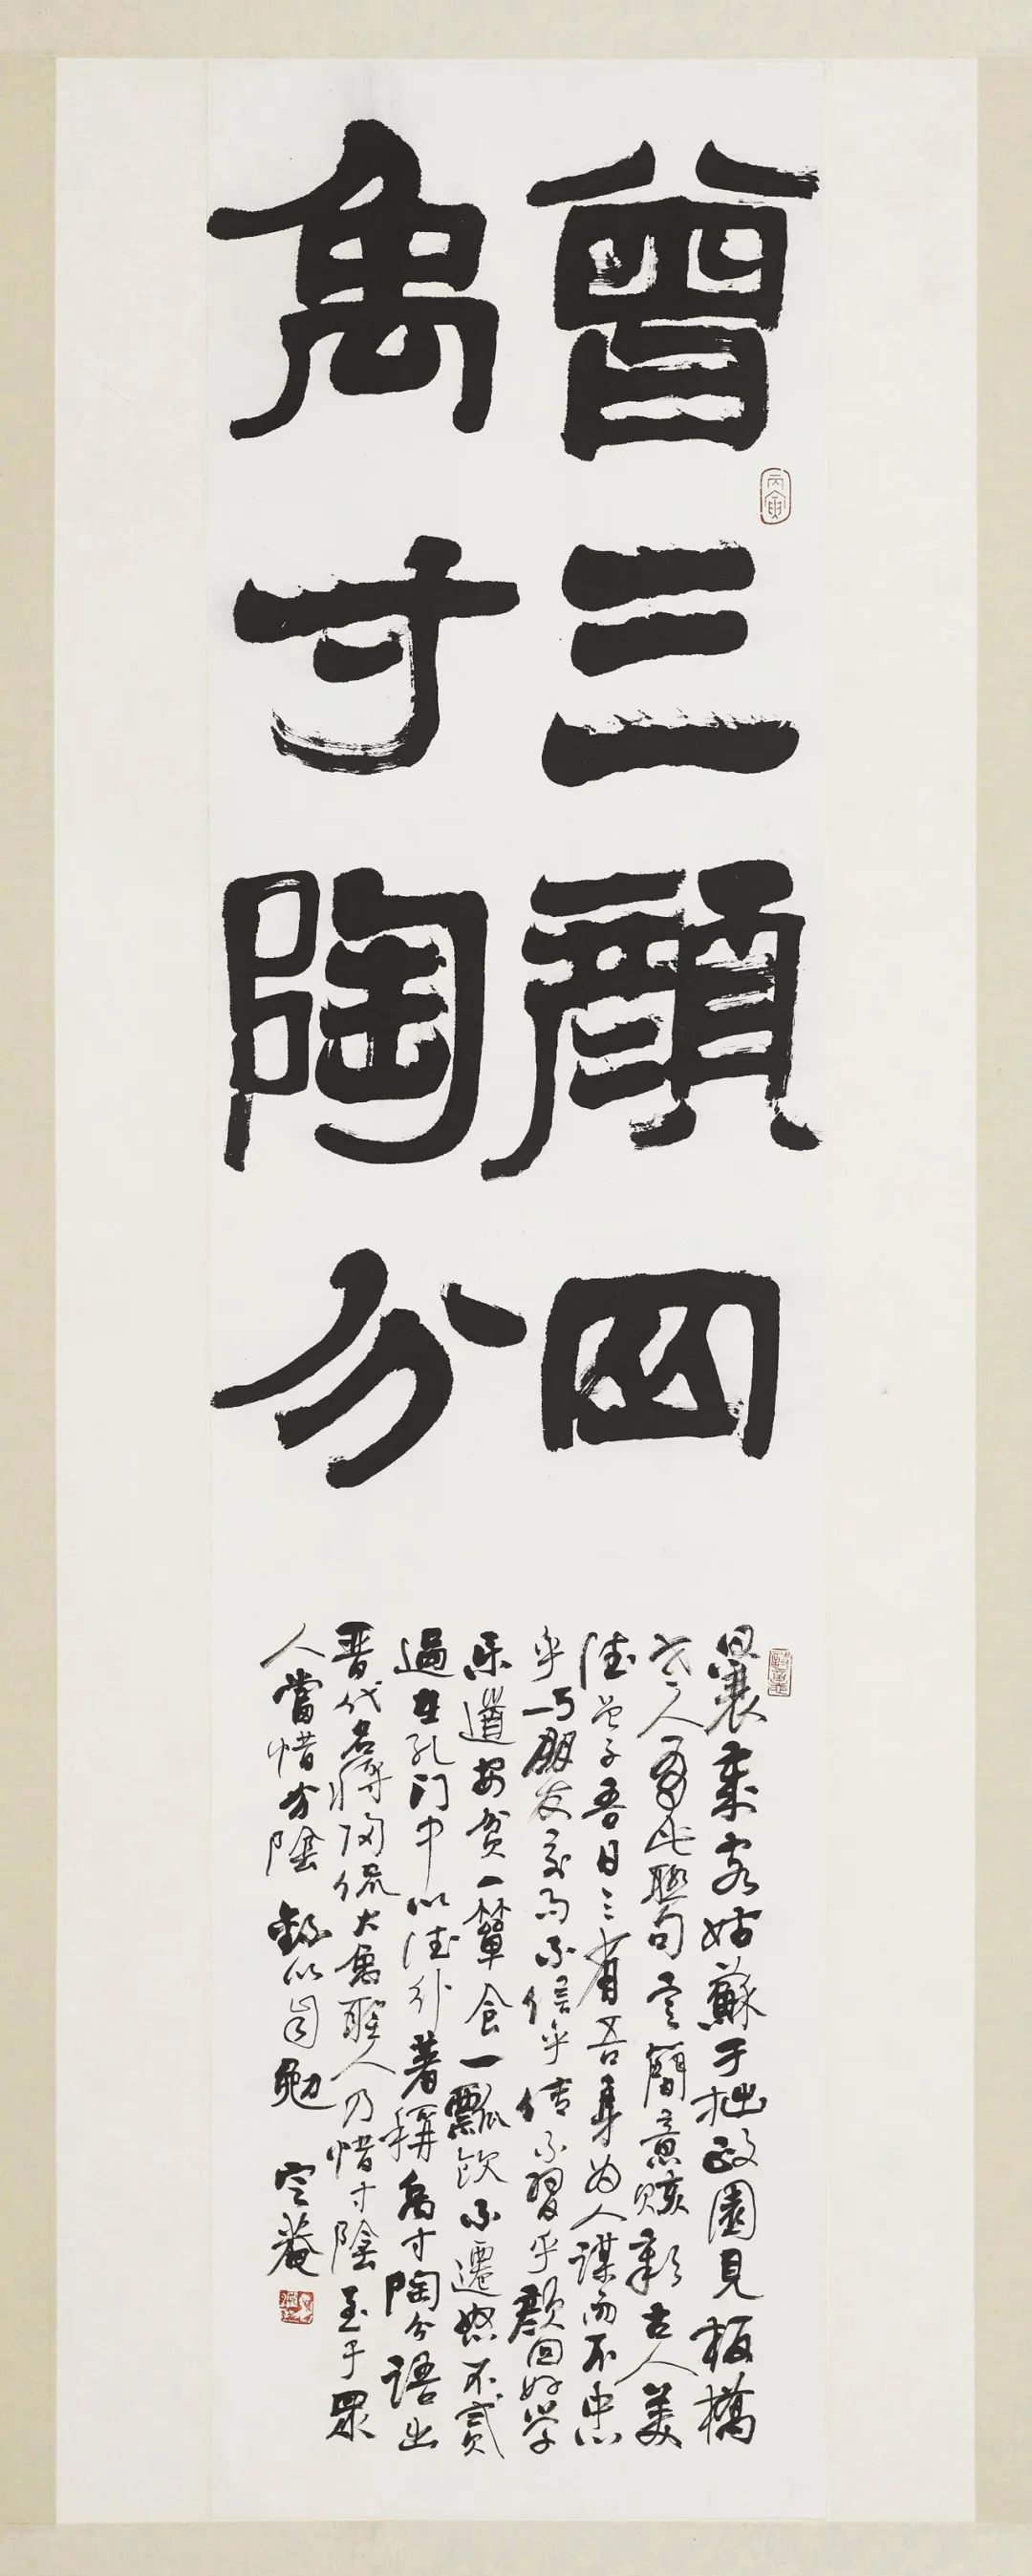 曾三顏四
禹寸陶分
曩乘客姑蘇于拙政園見板橋
老人書此聯句言簡意賅彰古人美
德曾子吾日三省吾身為人謀而不忠
乎与朋友交而不信乎传不習乎顏回好学
乐道安貧一簞食一瓢飲不遷怒不貳
過在孔门中以德行著稱禹寸陶分語出
晋代名將陶侃大禹聖人乃惜寸陰至于眾
人當惜分陰 錄以自勉 定菴
丙寅